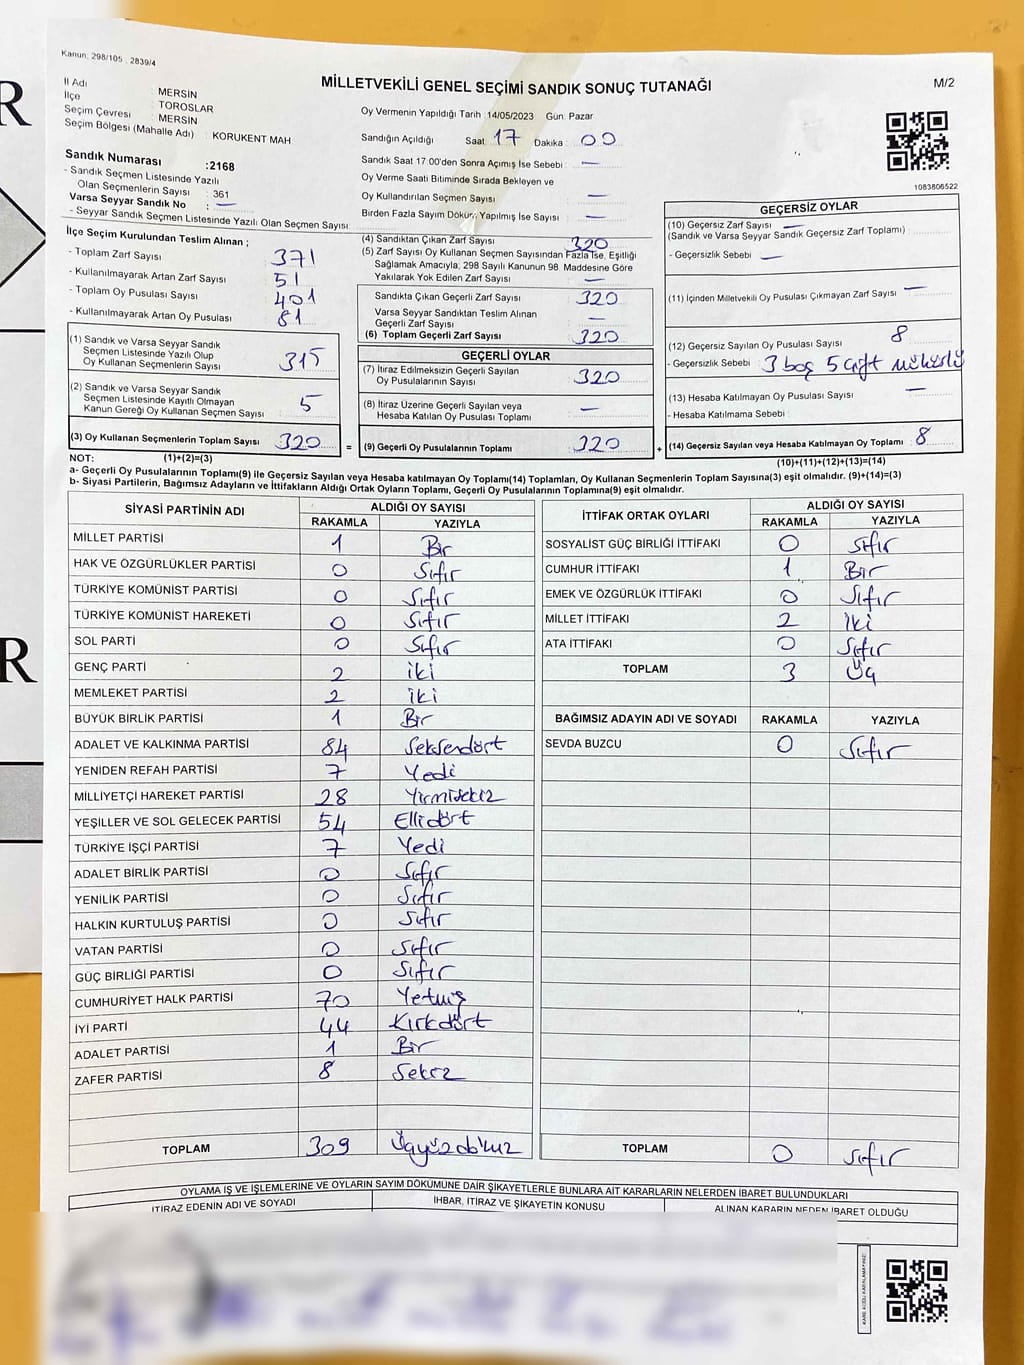 Kanun: 298/105 . 2839/4
MİLLETVEKİLİ GENEL SEÇİMİ SANDIK SONUÇ TUTANAĞI
M/2
İl Adı : MERSİN
İlçe : TOROSLAR
Seçim Çevresi : MERSİN
Seçim Bölgesi (Mahalle Adı) : KORUKENT MAH
Sandık Numarası :2168
- Sandık Seçmen Listesinde Yazılı
Olan Seçmenlerin Sayısı : 361
Varsa Seyyar Sandık No : —
- Seyyar Sandık Seçmen Listesinde Yazılı Olan Seçmen Sayısı:
Oy Vermenin Yapıldığı Tarih :14/05/2023 Gün: Pazar
Sandığın Açıldığı Saat : 17 Dakika : 00
Sandık Saat 17:00'den Sonra Açılmış İse Sebebi : —
Oy Verme Saati Bitiminde Sırada Bekleyen ve
Oy Kullandırılan Seçmen Sayısı : —
Birden Fazla Sayım Döküm Yapılmış İse Sayısı : —
1083806522
İlçe Seçim Kurulundan Teslim Alınan ;
- Toplam Zarf Sayısı : 371
- Kullanılmayarak Artan Zarf Sayısı : 51
- Toplam Oy Pusulası Sayısı : 401
- Kullanılmayarak Artan Oy Pusulası : 81
(1) Sandık ve Varsa Seyyar Sandık
Seçmen Listesinde Yazılı Olup
Oy Kullanan Seçmenlerin Sayısı : 315
(2) Sandık ve Varsa Seyyar Sandık
Seçmen Listesinde Kayıtlı Olmayan
Kanun Gereği Oy Kullanan Seçmen Sayısı : 5
(3) Oy Kullanan Seçmenlerin Toplam Sayısı : 320
(4) Sandıktan Çıkan Zarf Sayısı : 320
(5) Zarf Sayısı Oy Kullanan Seçmen Sayısından Fazla İse, Eşitliği
Sağlamak Amacıyla; 298 Sayılı Kanunun 98. Maddesine Göre
Yakılarak Yok Edilen Zarf Sayısı : —
Sandıkta Çıkan Geçerli Zarf Sayısı : 320
Varsa Seyyar Sandıktan Teslim Alınan
Geçerli Zarf Sayısı : —
(6) Toplam Geçerli Zarf Sayısı : 320
GEÇERLİ OYLAR
(7) İtiraz Edilmeksizin Geçerli Sayılan
Oy Pusulalarının Sayısı : 320
(8) İtiraz Üzerine Geçerli Sayılan veya
Hesaba Katılan Oy Pusulası Toplamı : —
= (9) Geçerli Oy Pusulalarının Toplamı : 320
GEÇERSİZ OYLAR
(10) Geçersiz Zarf Sayısı : —
(Sandık ve Varsa Seyyar Sandık Geçersiz Zarf Toplamı) :
- Geçersizlik Sebebi : —
(11) İçinden Milletvekili Oy Pusulası Çıkmayan Zarf Sayısı : —
(12) Geçersiz Sayılan Oy Pusulası Sayısı : 8
- Geçersizlik Sebebi : 3 boş 5 çift mühürlü
(13) Hesaba Katılmayan Oy Pusulası Sayısı : —
- Hesaba Katılmama Sebebi :
+ (14) Geçersiz Sayılan veya Hesaba Katılmayan Oy Toplamı : 8
NOT: (1)+(2)=(3)
(10)+(11)+(12)+(13)=(14)
a- Geçerli Oy Pusulalarının Toplamı(9) ile Geçersiz Sayılan veya Hesaba katılmayan Oy Toplamı(14) Toplamları, Oy Kullanan Seçmenlerin Toplam Sayısına(3) eşit olmalıdır. (9)+(14)=(3)
b- Siyasi Partilerin, Bağımsız Adayların ve İttifakların Aldığı Ortak Oyların Toplamı, Geçerli Oy Pusulalarının Toplamına(9) eşit olmalıdır.
SİYASİ PARTİNİN ADI ALDIĞI OY SAYISI
RAKAMLA YAZIYLA
MİLLET PARTİSİ 1 Bir
HAK VE ÖZGÜRLÜKLER PARTİSİ 0 Sıfır
TÜRKİYE KOMÜNİST PARTİSİ 0 Sıfır
TÜRKİYE KOMÜNİST HAREKETİ 0 Sıfır
SOL PARTİ 0 Sıfır
GENÇ PARTİ 2 iki
MEMLEKET PARTİSİ 2 iki
BÜYÜK BİRLİK PARTİSİ 1 Bir
ADALET VE KALKINMA PARTİSİ 84 Seksendört
YENİDEN REFAH PARTİSİ 7 Yedi
MİLLİYETÇİ HAREKET PARTİSİ 28 Yirmisekiz
YEŞİLLER VE SOL GELECEK PARTİSİ 54 Ellidört
TÜRKİYE İŞÇİ PARTİSİ 7 Yedi
ADALET BİRLİK PARTİSİ 0 Sıfır
YENİLİK PARTİSİ 0 Sıfır
HALKIN KURTULUŞ PARTİSİ 0 Sıfır
VATAN PARTİSİ 0 Sıfır
GÜÇ BİRLİĞİ PARTİSİ 0 Sıfır
CUMHURİYET HALK PARTİSİ 70 Yetmiş
İYİ PARTİ 44 Kırkdört
ADALET PARTİSİ 1 Bir
ZAFER PARTİSİ 8 Sekiz
TOPLAM 309 Üçyüzdokuz
İTTİFAK ORTAK OYLARI ALDIĞI OY SAYISI
RAKAMLA YAZIYLA
SOSYALİST GÜÇ BİRLİĞİ İTTİFAKI 0 Sıfır
CUMHUR İTTİFAKI 1 Bir
EMEK VE ÖZGÜRLÜK İTTİFAKI 0 Sıfır
MİLLET İTTİFAKI 2 iki
ATA İTTİFAKI 0 Sıfır
TOPLAM 3 Üç
BAĞIMSIZ ADAYIN ADI VE SOYADI RAKAMLA YAZIYLA
SEVDA BUZCU 0 Sıfır
TOPLAM 0 Sıfır
OYLAMA İŞ VE İŞLEMLERİNE VE OYLARIN SAYIM DÖKÜMÜNE DAİR ŞİKAYETLERLE BUNLARA AİT KARARLARIN NELERDEN İBARET BULUNDUKLARI
İTİRAZ EDENİN ADI VE SOYADI İHBAR, İTİRAZ VE ŞİKAYETİN KONUSU ALINAN KARARIN NEDEN İBARET OLDUĞU